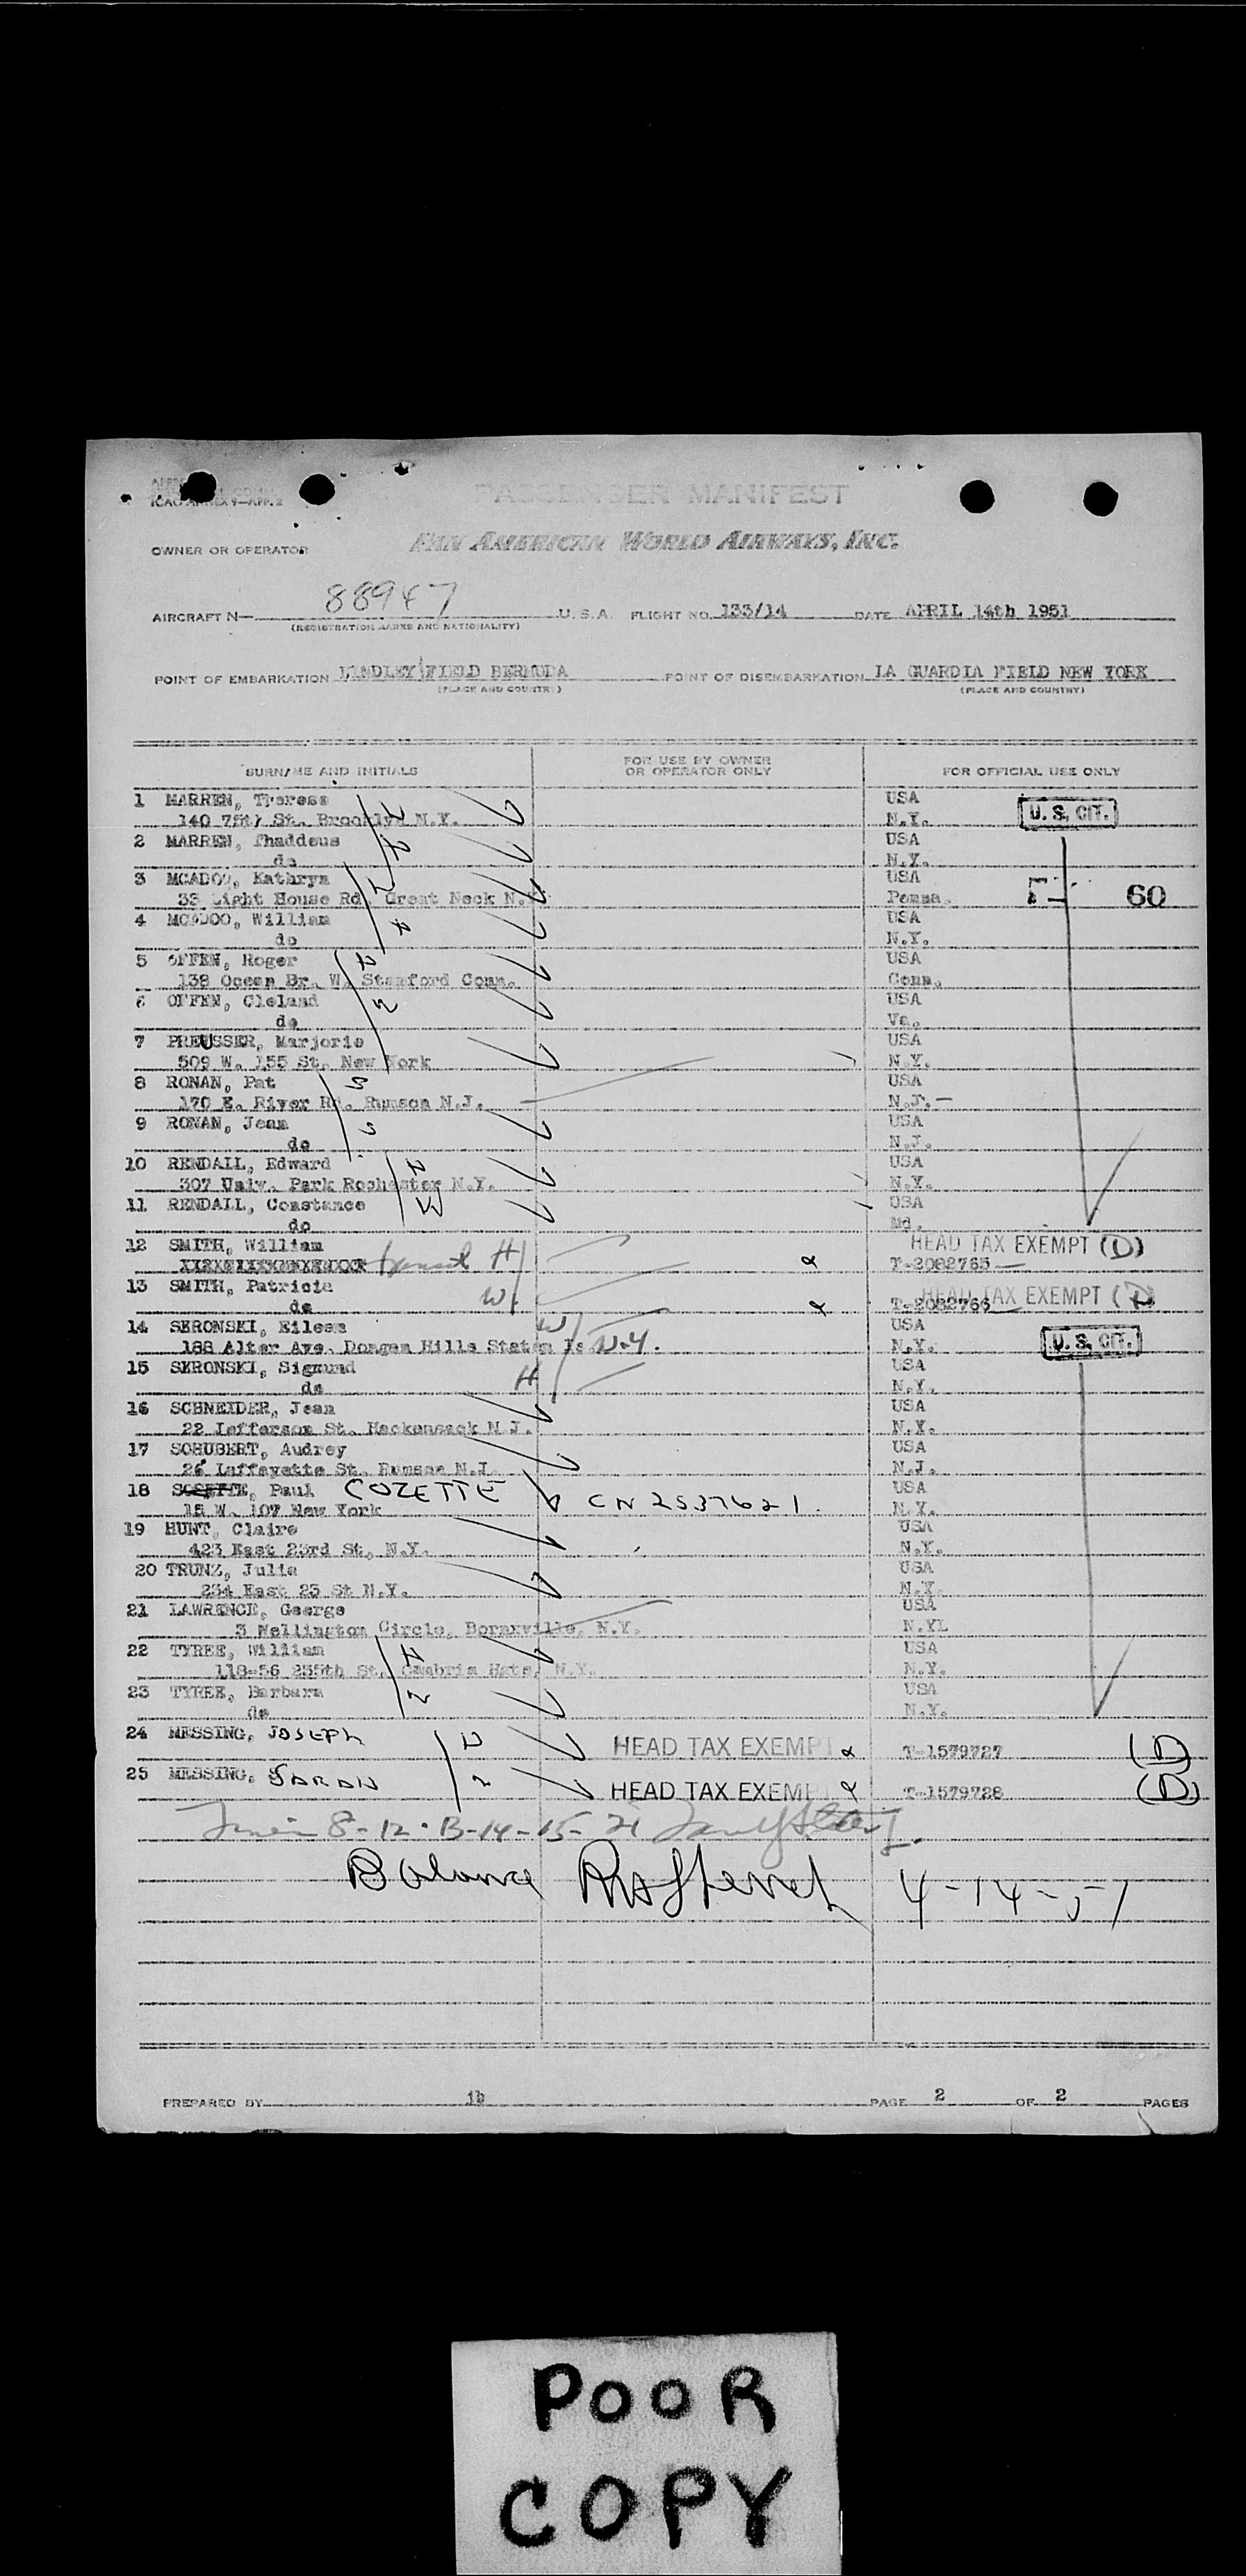 ICAO ANNEX 9—APP. 2
PASSENGER MANIFEST
OWNER OR OPERATOR PAN AMERICAN WORLD AIRWAYS, INC.
AIRCRAFT N— 88947 U.S.A. FLIGHT NO. 133/14 DATE APRIL 14th 1951
(REGISTRATION MARKS AND NATIONALITY)
POINT OF EMBARKATION KINDLEY FIELD BERMUDA POINT OF DISEMBARKATION LA GUARDIA FIELD NEW YORK
(PLACE AND COUNTRY) (PLACE AND COUNTRY)
SURNAME AND INITIALS FOR USE BY OWNER OR OPERATOR ONLY FOR OFFICIAL USE ONLY
1 MARREN, Theress USA
140 75th St. Brooklyn N.Y. N.Y. U.S. CIT.
2 MARREN, Thaddeus USA
do N.Y.
3 MCADOO, Kathryn USA
33 Light House Rd. Great Neck N.Y. Penna. 60
4 MCADOO, William USA
do N.Y.
5 OFFEN, Roger USA
138 Ocean Dr. W. Stamford Conn. Conn.
6 OFFEN, Cleland USA
do Va.
7 PREUSSER, Marjorie USA
509 W. 155 St. New York N.Y.
8 RONAN, Pat USA
170 E. River Rd. Rumson N.J. N.J.
9 RONAN, Jean USA
do N.J.
10 RENDALL, Edward USA
307 Univ. Park Rochester N.Y. N.Y.
11 RENDALL, Constance USA
do Md.
12 SMITH, William HEAD TAX EXEMPT (D)
H T-2082765
13 SMITH, Patricia HEAD TAX EXEMPT (D)
do W T-2082766
14 SERONSKI, Eileen W USA
188 Alter Ave. Dongan Hills Staten Is N.Y. N.Y. U.S. CIT.
15 SERONSKI, Sigmund USA
do H N.Y.
16 SCHNEIDER, Jean USA
22 Jefferson St. Hackensack N.J. N.Y.
17 SCHUBERT, Audrey USA
26 Laffayette St. Rumson N.J. N.J.
18 Paul COZETTE CN 2537621. USA
15 W. 107 New York N.Y.
19 HUNT, Claire USA
423 East 23rd St, N.Y. N.Y.
20 TRUNZ, Julia USA
234 East 25 St N.Y. N.Y.
21 LAWRENCE, George USA
3 Wellington Circle, Bornxville, N.Y. N.YL
22 TYREE, William USA
118-56 235th St. Cambria Hgts, N.Y. N.Y.
23 TYREE, Barbara USA
do N.Y.
24 MESSING, JOSEPH HEAD TAX EXEMPT T-1579727 (D)
25 MESSING, SARAH HEAD TAX EXEMPT T-1579728 (D)
8-12-13-14-15-21
Balance 4-14-51
PREPARED BY jb PAGE 2 OF 2 PAGES
POOR
COPY